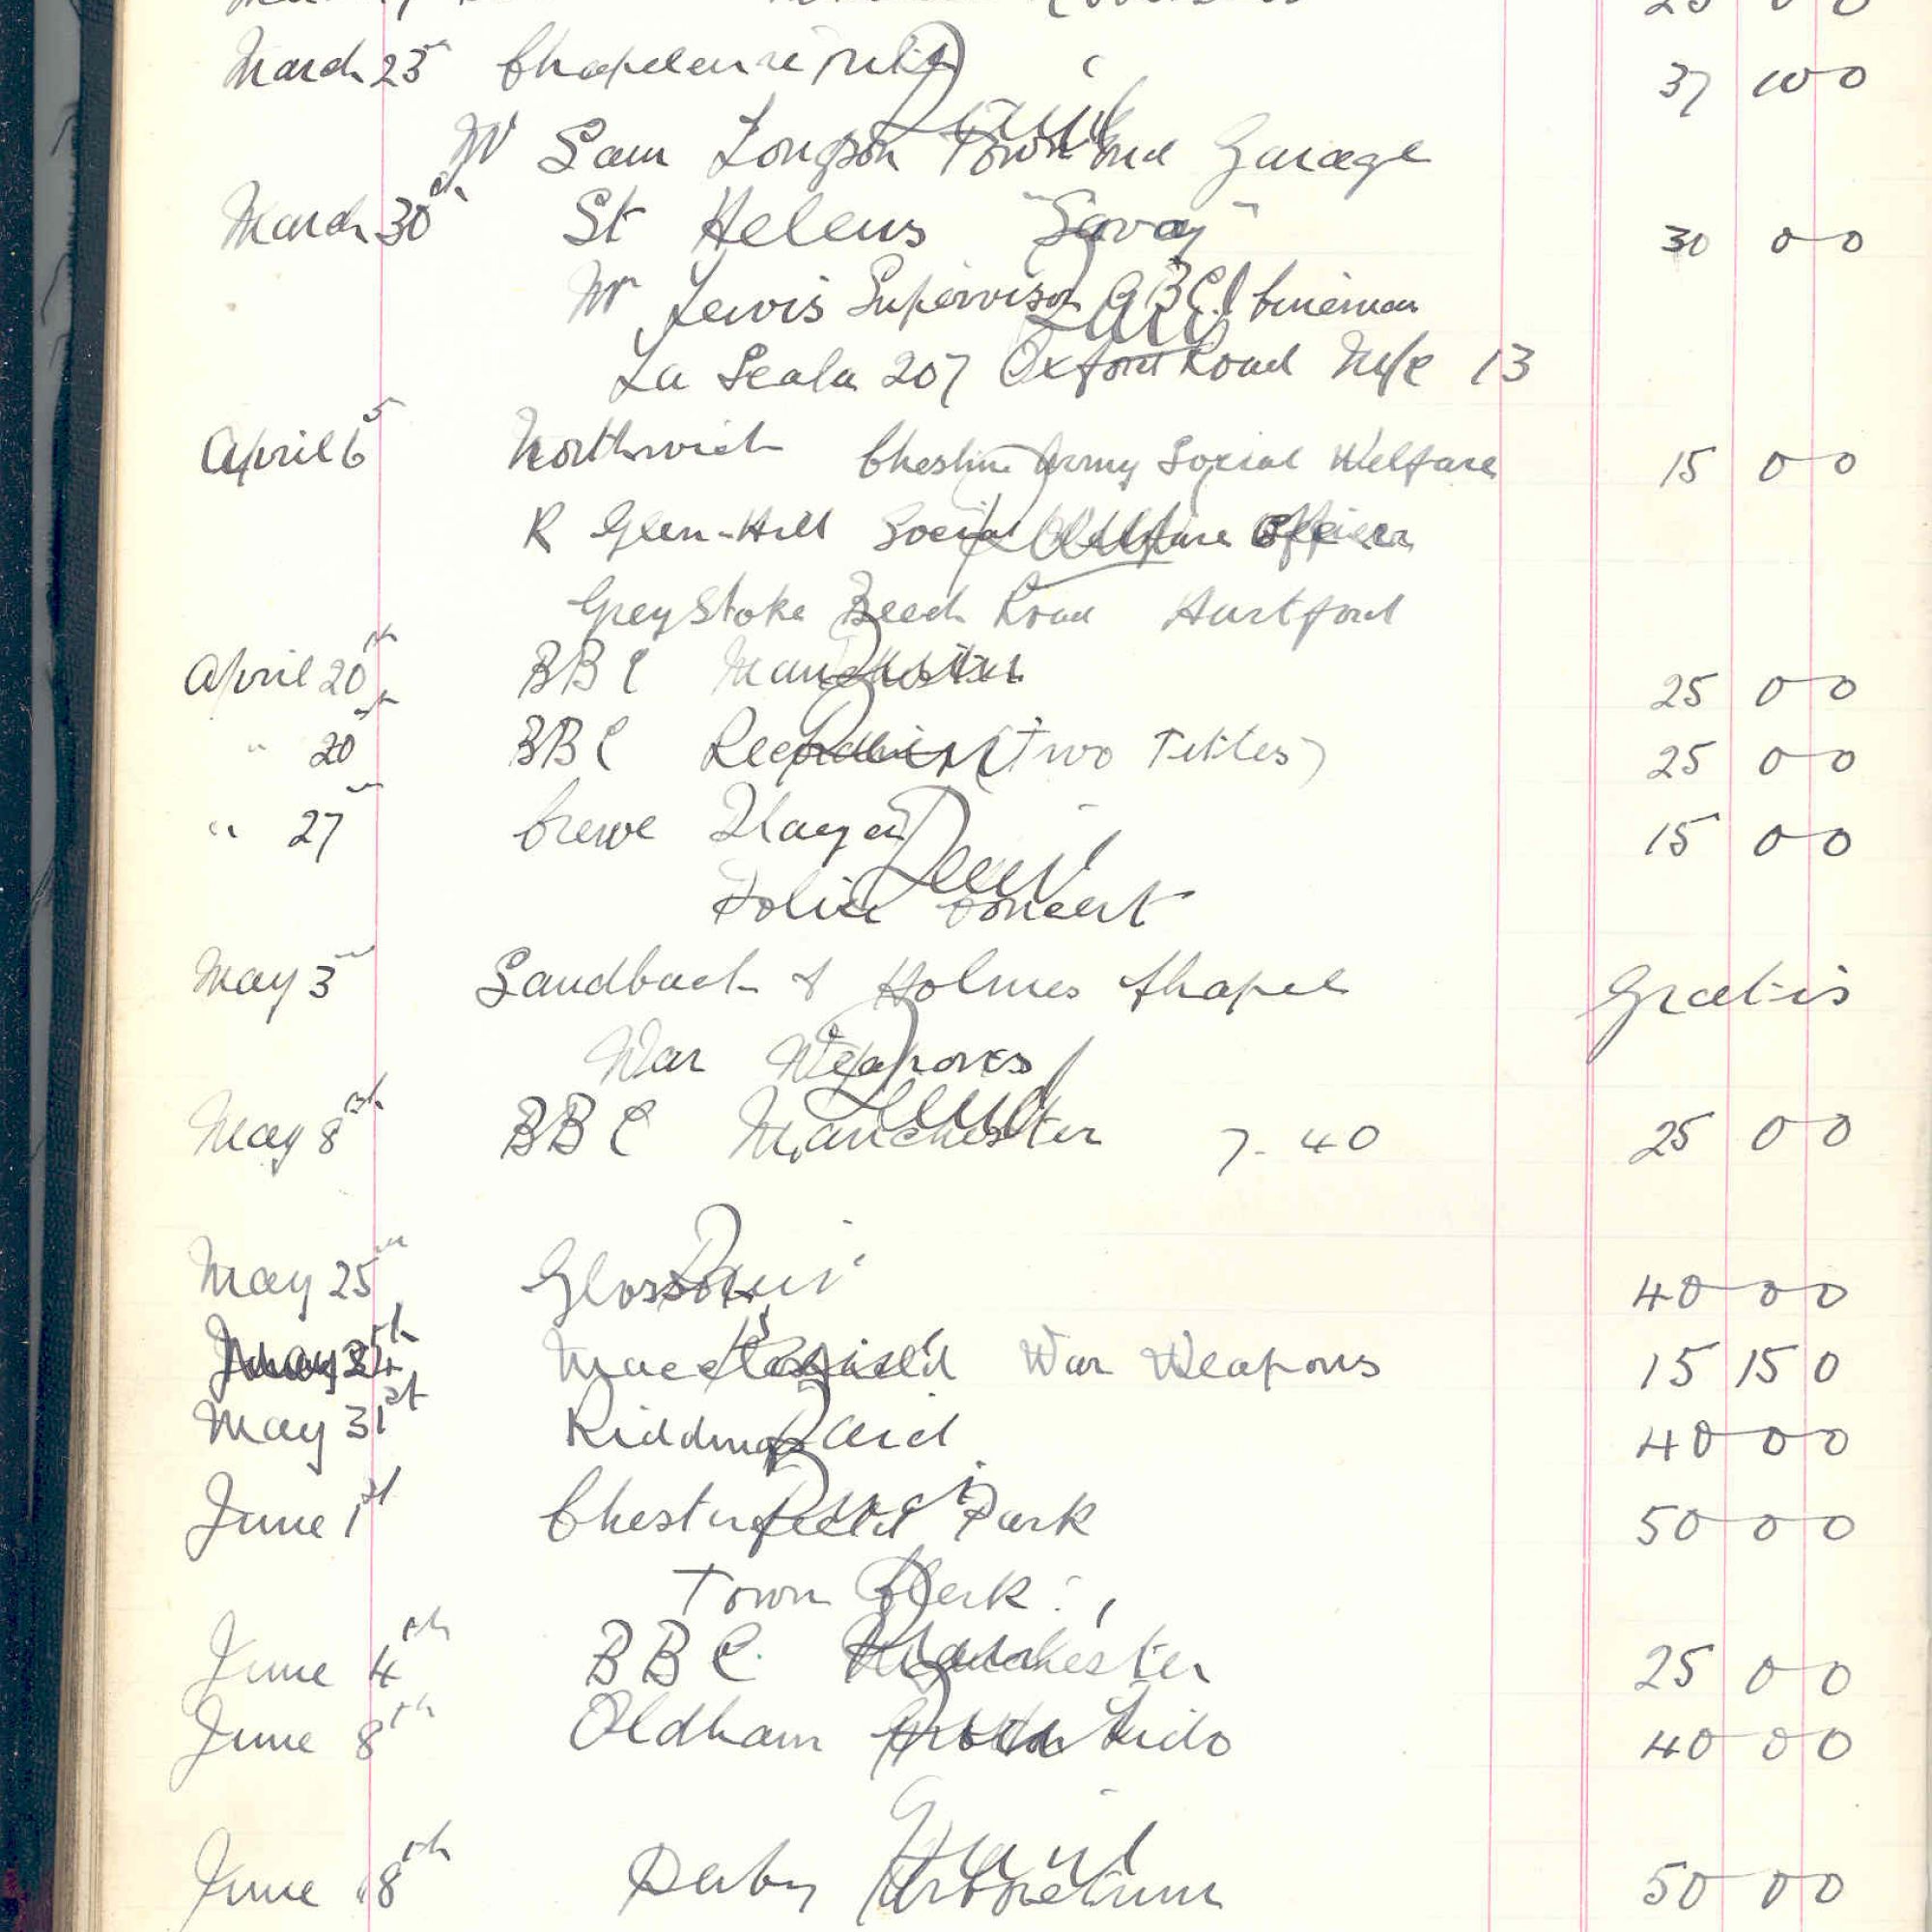 25 0 0
March 23rd Chapel en le Frith 37 10 0
Paid
Mr Sam Longson Town End Garage
March 30th St Helens "Savoy" 30 0 0
Mr Lewis Supervisor ABC Cinemas
Paid
La Scala 207 Oxford Road M/c 13
April 6 Northwich Cheshire Army Social Welfare 15 0 0
R Glen-Hill Social Welfare Officer
Greystoke Beech Road Hartford
April 20th BBC Manchester 25 0 0
" 20th BBC Recording (Two Titles) 25 0 0
" 27th Crewe 15 0 0
Paid
Police Concert
May 3rd Sandbach & Holmes Chapel Gratis
War Weapons
Paid
May 8th BBC Manchester 7-40 25 0 0
May 25th Glossop Paid 40 0 0
Macclesfield War Weapons 15 15 0
May 31st Riddings Paid 40 0 0
June 1st Chesterfield Park 50 0 0
Paid
Town Clerk
June 4th BBC Manchester 25 0 0
June 8th Oldham Lido 40 0 0
Paid
June 8th Derby Arboretum 50 0 0